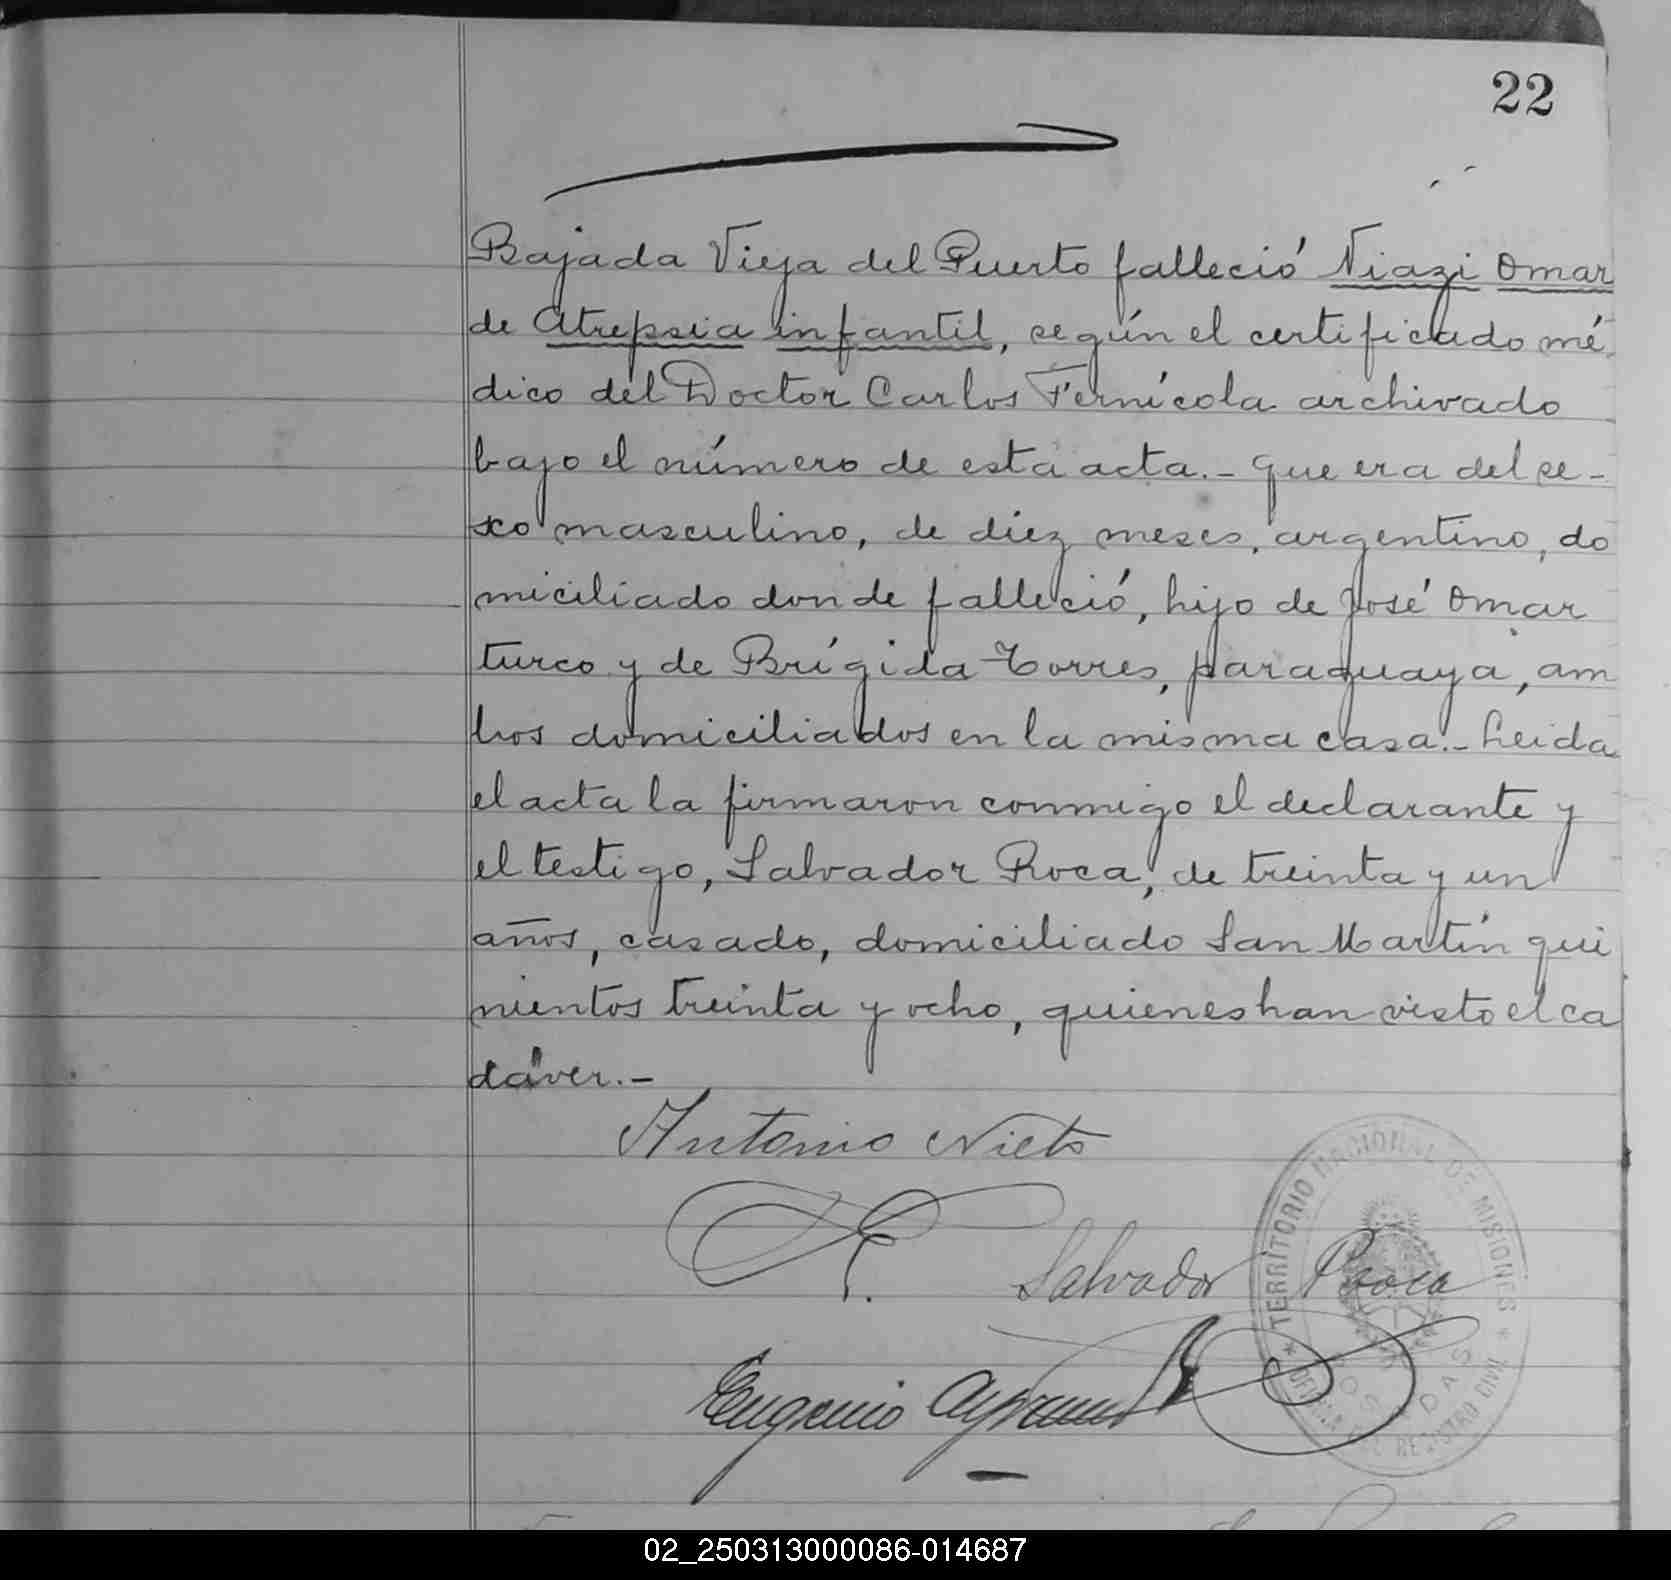 22
Bajada Vieja del Puerto falleció Niazi Omar
de Atrepsia infantil, según el certificado mé
dico del Doctor Carlos Fernícola archivado
bajo el número de esta acta.- Que era del se-
xo masculino, de diez meses, argentino, do
miciliado donde falleció, hijo de José Omar
turco y de Brígida Torres, paraguaya, am
bos domiciliados en la misma casa.- Leida
el acta la firmaron conmigo el declarante y
el testigo, Salvador Roca, de treinta y un
años, casado, domiciliado San Martín qui
nientos treinta y ocho, quienes han visto el ca
dáver.-
Antonio Nieto
Salvador Roca
Eugenio
TERRITORIO NACIONAL DE MISIONES
OFICINA DEL REGISTRO CIVIL
POSADAS
02_250313000086-014687